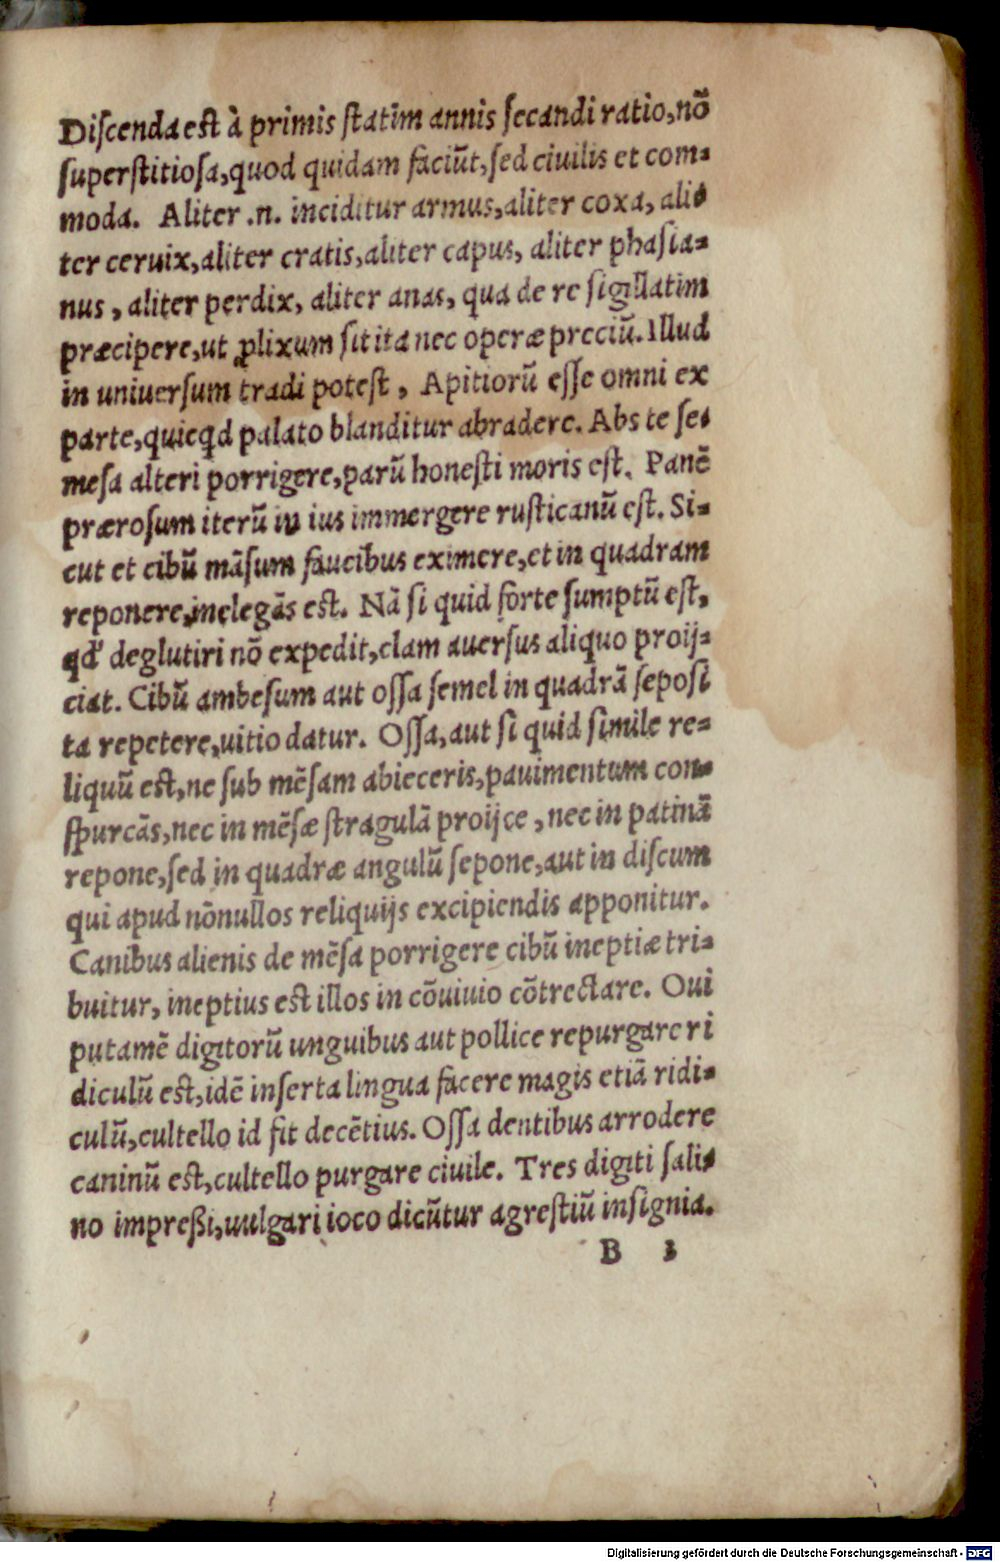 Diſcenda est à primis ſtatim annis ſecandi ratio, nõ
ſuperſtitioſa, quod quidam faciũt, ſed ciuilis et com-
moda. Aliter .n. inciditur armus, aliter coxa, ali-
ter ceruix, aliter cratis, aliter capus, aliter phaſia-
nus, aliter perdix, aliter anas, qua de re ſigillatim
præcipere, ut ꝓlixum ſit ita nec operæ preciũ. Illud
in uniuerſum tradi poteſt, Apitiorũ eſſe omni ex
parte, quicqd palato blanditur abradere. Abs te ſe-
meſa alteri porrigere, parũ honeſti moris eſt. Panẽ
præroſum iterũ in ius immergere ruſticanũ eſt. Si-
cut et cibũ mãſum faucibus eximere, et in quadram
reponere, inelegãs est. Nã ſi quid forte ſumptũ eſt,
qd' deglutiri nõ expedit, clam auerſus aliquo proij-
ciat. Cibũ ambeſum aut oſſa ſemel in quadrã ſepoſi
ta repetere, uitio datur. Oſſa, aut ſi quid ſimile re-
liquũ eſt, ne ſub mẽſam abieceris, pauimentum con-
ſpurcãs, nec in mẽſæ ſtragulã proijce, nec in patinã
repone, ſed in quadræ angulũ ſepone, aut in diſcum
qui apud nõnullos reliquijs excipiendis apponitur.
Canibus alienis de mẽſa porrigere cibũ ineptiæ tri-
buitur, ineptius eſt illos in cõuiuio cõtrectare. Oui
putamẽ digitorũ unguibus aut pollice repurgare ri
diculũ eſt, idẽ inſerta lingua facere magis etiã ridi-
culũ, cultello id fit decẽtius. Oſſa dentibus arrodere
caninũ eſt, cultello purgare ciuile. Tres digiti ſali-
no impreßi, uulgari ioco dicũtur agreſtiũ inſignia.
B 3
Digitalisierung gefördert durch die Deutsche Forschungsgemeinschaft - DFG